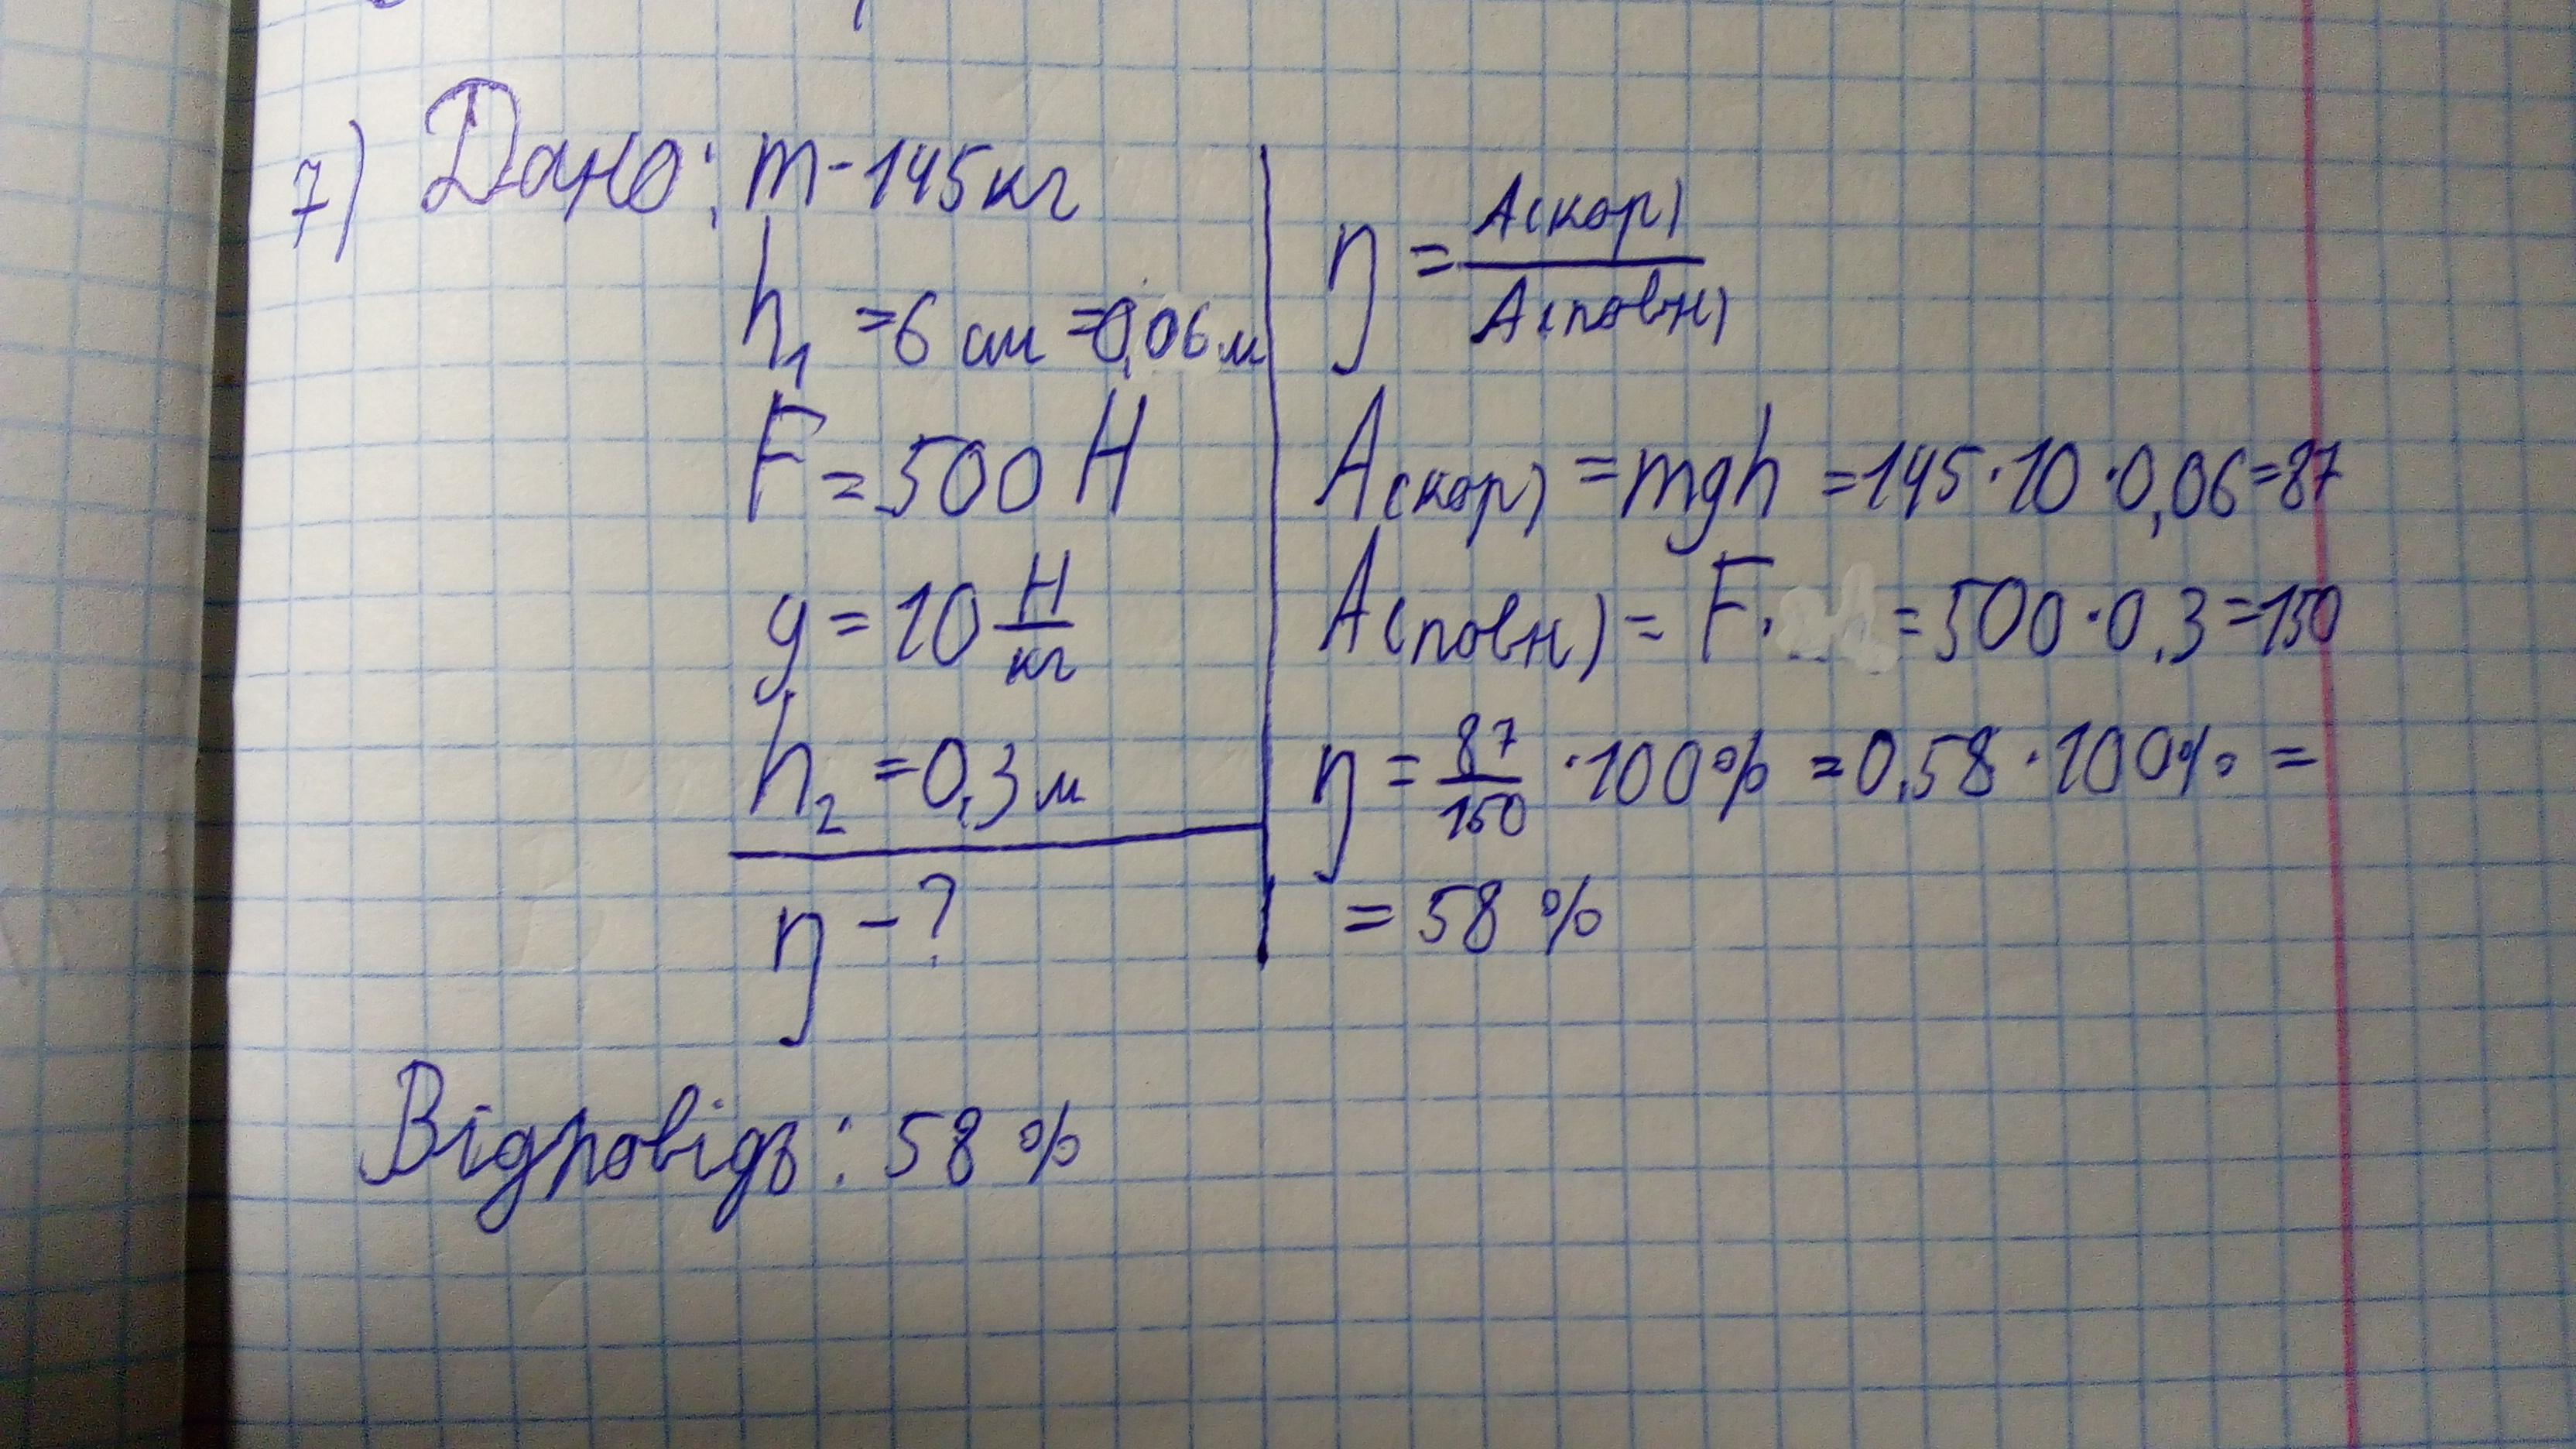 7) Дано: m - 145 кг
h₁ = 6 см = 0,06 м
F = 500 Н
g = 10 Н/кг
h₂ = 0,3 м
η - ?
η = A(кор) / A(повн)
A(кор) = mgh = 145 · 10 · 0,06 = 87
A(повн) = F · = 500 · 0,3 = 150
η = 87/150 · 100% = 0,58 · 100% =
= 58 %
Відповідь: 58 %